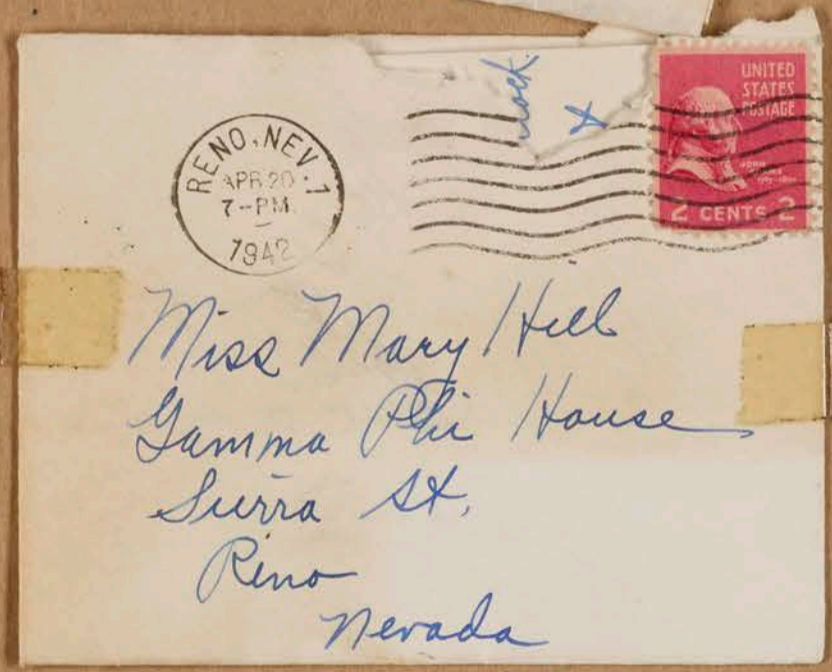 RENO, NEV. 1
APR 20
7-PM
1942
UNITED
STATES
POSTAGE
JOHN
2 CENTS 2
Miss Mary Hill
Gamma Phi House
Sierra St.
Reno
Nevada